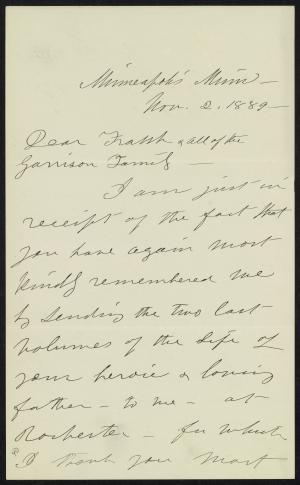 Minneapolis Minn —
Nov. 2. 1889 —
Dear Frank & all of the
Garrison Family —
I am just in
receipt of the fact that
you have again most
kindly remembered me
by sending the two last
volumes of the Life of
your heroic & loving
father — to me — at
Rochester — for which
I thank you most